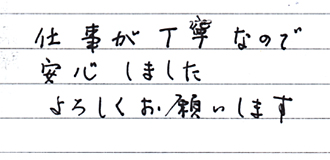 仕事が丁寧なので
安心しました
よろしくお願いします